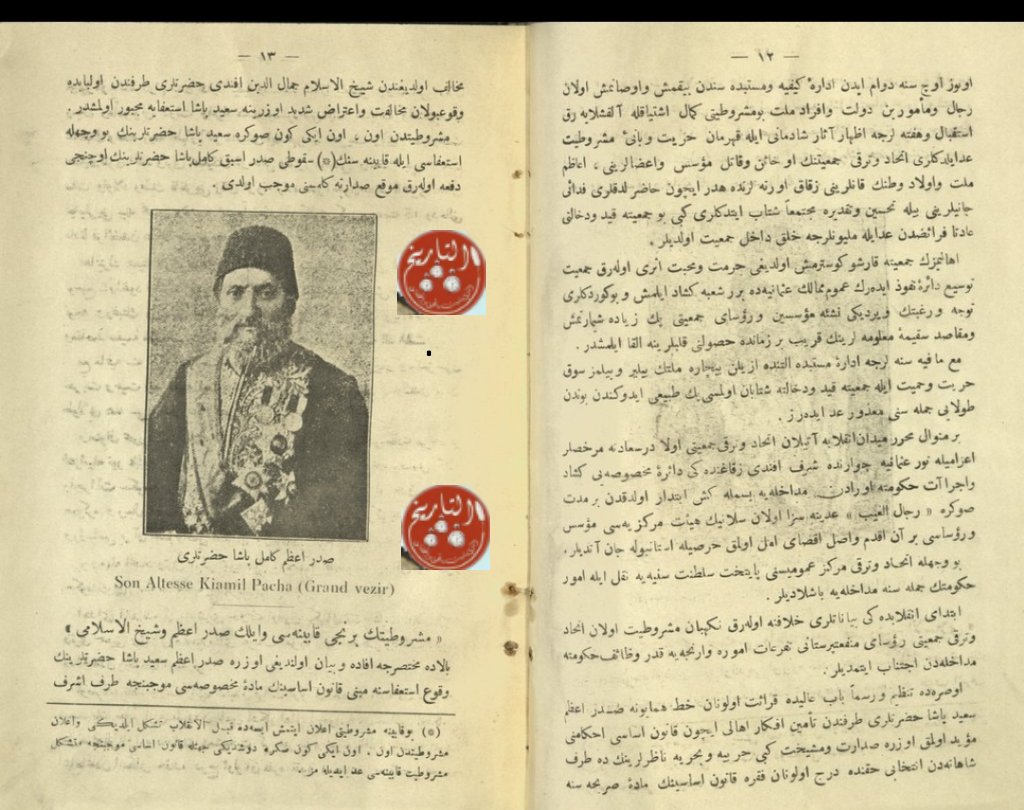 — ١٢ —
اوتوز اوچ سنه دوام ایدن ادارهٔ کیفیه ومستبده سندن بیقمش واوصانمش اولان
رجال ومأمورین دولت وافراد ملت بومشروطیتی کمال اشتیاقله آلقشلایه رق
استقبال وهفته لرجه اظهار آثار شادمانی ایله قهرمان حریت وبانیٔ مشروطیت
عدایلدکلری اتحاد وترقی جمعیتنك او خائن وقاتل مؤسس واعضالرینی ، اعاظم
ملت واولاد وطنك قانلرینی زقاق اورته لرنده هدر ایچون حاضرلدقلری فدائی
جانیلرینی بیله تحسین وتقدیره مجتمعاً شتاب ایتدکلری کبی بو جمعیته قید ودخالتی
عادتا فرائضدن عدایله ملیونلرجه خلق داخل جمعیت اولدیلر .
اهالیمزك جمعیته قارشو کوسترمش اولدیغی حرمت ومحبت اثری اوله رق جمعیت
توسیع دائرهٔ نفوذ ایده رك عموم ممالك عثمانیه ده برر شعبه کشاد ایلمش وبوکوردکلری
توجه ورغبتك ویردیکی نشئه مؤسسین ورؤسای جمعیتی پك زیاده شیمارتمش
ومقاصد سقیمهٔ معلومه لرینك قریب بر زمانده حصولنی قلبلرینه القا ایلمشدر .
مع مافیه سنه لرجه ادارهٔ مستبده التنده ازیلن بیچاره ملتك بیلیر وبیلمز سوق
حریت وحمیت ایله جمعیته قید ودخالته شتابان اولمسی پك طبیعی ایدوکندن بوندن
طولایی جمله سنی معذور عد ایده رز .
بر منوال محرر میدان انقلابه آتیلان اتحاد وترقی جمعیتی اولا درسعادته مرخصلر
اعزامیله نور عثمانیه جوارنده شرف افندی زقاغنده کی دائرهٔ مخصوصه یی کشاد
واجراآت حکومته اورادن مداخله یه بسمله کش ابتدار اولدقدن بر مدت
صوکره « رجال الغیب » عدینه سزا اولان سلانیك هیئت مرکزیه سی مؤسس
ورؤساسی بر آن اقدم واصل اقصای امل اولمق حرصیله استانبوله جان آتدیلر .
بو وجهله اتحاد وترقی مرکز عمومیسنی پایتخت سلطنت سنیه یه نقل ایله امور
حکومتك جمله سنه مداخله یه باشلادیلر .
ابتدای انقلابده کی بیاناتلری خلافنه اوله رق نکهبان مشروطیت اولان اتحاد
وترقی جمعیتی رؤسای منفعتپرستانی تفرعات اموره وارنجه یه قدر وظائف حکومته
مداخله دن اجتناب ایتمدیلر .
اوصره ده تنظیم ورسماً باب عالیده قرائت اولونان خط همایونه صدر اعظم
سعید پاشا حضرتلری طرفندن تأمین افکار اهالی ایچون قانون اساسی احکامنی
مؤید اولمق اوزره صدارت ومشیخت کبی حربیه وبحریه ناظرلرینك ده طرف
شاهانه دن انتخابی حقنده درج اولونان فقره قانون اساسینك مادهٔ صریحه سنه
— ١٣ —
مخالف اولدیغندن شیخ الاسلام جمال الدین افندی حضرتلری طرفندن اولبابده
وقوعبولان مخالفت واعتراض شدید اوزرینه سعید پاشا استعفایه مجبور اولمشدر .
مشروطیتدن اون ، اون ایکی کون صوکره سعید پاشا حضرتلرینك بو وجهله
استعفاسی ایله قابینه سنك(*) سقوطی صدر اسبق کامل پاشا حضرتلرینك اوچنجی
دفعه اوله رق موقع صدارته کلمسنی موجب اولدی .
التاریخ
التاریخ
صدر اعظم کامل پاشا حضرتلری
Son Altesse Kiamil Pacha (Grand vezir)
« مشروطیتك برنجی قابینه سی وایلك صدر اعظم وشیخ الاسلامی »
بالاده مختصرجه افاده وبیان اولندیغی اوزره صدر اعظم سعید پاشا حضرتلرینك
وقوع استعفاسنه مبنی قانون اساسینك مادهٔ مخصوصه سی موجبنجه طرف اشرف
(*) بوقابینه مشروطیتی اعلان ایتمش ایسه ده قبل الانقلاب تشکل ایلدیکی واعلان
مشروطیتدن اون ، اون ایکی کون صکره دوشدیکی جهتله قانون اساسی موجبنجه متشکل
مشروطیت قابینه سی عد ایدیله مز